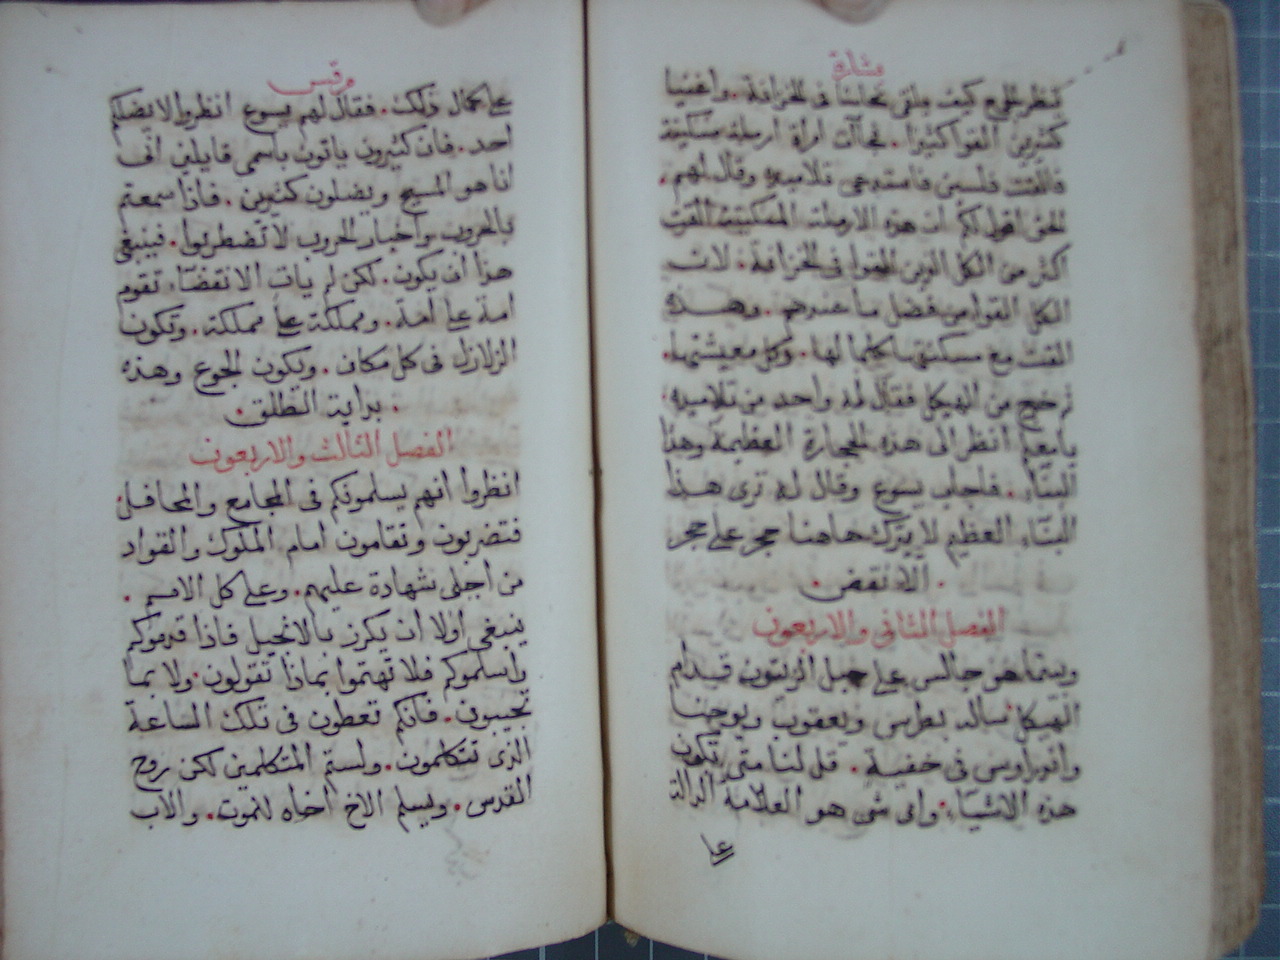 بشارة
ينظر الجميع كيف يلقى نحاسا فى الخزانة. واغنيا
كثيرين القوا كثيرًا. فجآت امراة ارملة مسكينة
فالقت فلسين فاستدعى تلاميده وقال لهم.
الحق اقول لكم ان هذه الارملة المسكينة القت
اكثر من الكل الذين القوا فى الخزانة. لان
الكل القوا من فضل ما عندهم. وهذه
القت مع مسكنتها كلما لها. وكل معيشتها.
خرج من الهيكل فقال له واحد من تلاميده.
يامعلم انظر الى هذه الحجارة العظيمة وهذا
البنآء. فاجاب يسوع وقال له ترى هذا
البنآء العظيم لا يترك هاهنا حجر على حجر
. الا نقض.
الفصل الثانى والاربعون
وبينما هو جالس على جبل الزيتون قدام
الهيكل ساله بطرس ويعقوب ويوحنا
واندراوس فى خفية. قل لنا متى تكون
هذه الاشيآء. واى شى هو العلامة الدالة
على
مرقس
على كمال ذلك. فقال لهم يسوع انظروا لا يضلكم
احد. فان كثيرون ياتون باسمى قايلين ان
انا هو المسيح ويضلون كثيرين. فاذا سمعتم
بالحروب واخبار الحروب لا تضطربوا. فينبغى
هذا ان يكون. لكن لم يات الانقضآء تقوم
امة على امة. ومملكة على مملكة. وتكون
الزلازل فى كل مكان. ويكون الجوع وهذه
. بداية الطلق.
الفصل الثالث والاربعون
انظروا انهم يسلمونكم فى المجامع والمحافل
فتضربون وتقامون امام الملوك والقواد
من اجلى شهادة عليهم. وعلى كل الامم.
ينبغى اولا ان يكرز بالانجيل فاذا قدموكم
واسلموكم فلا تهتموا بماذا تقولون. ولا بما
تجيبون. فانكم تعطون فى تلك الساعة
الذى تتكلمون. ولستم المتكلمين لكن روح
القدس. ويسلم الاخ اخاه للموت. والاب